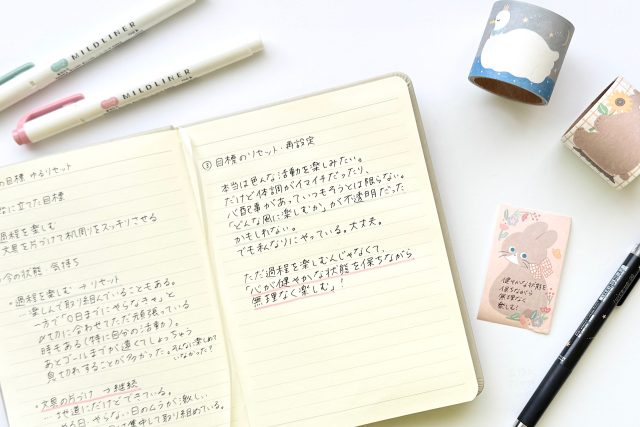 MILDLINER
MILDLINER
の目標 ゆるリセット
に立てた目標
過程を楽しむ
文具を片づけて机周りをスッキリさせる
今の状態 気持ち
・過程を楽しむ → リセット
楽しんで取り組んでいることもある。
一方で「〇日までにやらなきゃ」と
〆切に合わせてただ頑張っている
時もある(特に自分の活動)。
あとゴールまでが遠くてしょっちゅう
見切れすることが多かった。そんなに楽しめて
いなかった?
・文具の片づけ → 継続
地道にだけどできている。
やる日・やらない日のムラが激しい
集中して取り組めている。
③ 目標のリセット・再設定
本当は色んな活動を楽しみたい。
だけど体調がイマイチだったり、
心配事があっていつもそうとは限らない。
「どんな風に楽しむか」が不透明だった
かもしれない。
でも私なりにやっている。大丈夫。
ただ過程を楽しむんじゃなくて、
「心が健やかな状態を保ちながら
無理なく楽しむ」?
健やかな状態を
保ちながら
無理なく
楽しむ!